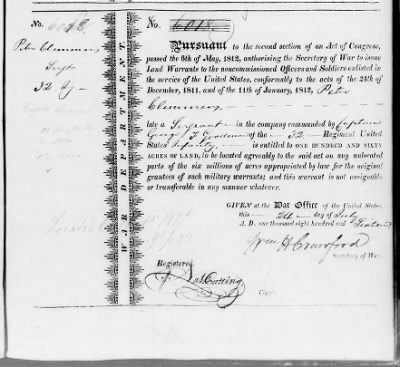 No. 6018
Peter Clemmens
Sergt
32 Ty
WAR DEPARTMENT.
No. 6018.
Pursuant to the second section of an Act of Congress,
passed the 6th of May, 1812, authorising the Secretary of War to issue
Land Warrants to the noncommissioned Officers and Soldiers enlisted in
the service of the United States, conformably to the acts of the 24th of
December, 1811, and of the 11th of January, 1812, Peter
Clemmens
late a Sergeant in the company commanded by Captain
George of the 32 Regiment United
States Infantry is entitled to ONE HUNDRED AND SIXTY
ACRES OF LAND, to be located agreeably to the said act on any unlocated
parts of the six millions of acres appropriated by law for the original
grantees of such military warrants; and this warrant is not assignable
or transferable in any manner whatever.
GIVEN at the War Office of the United States,
this 24 day of July
A. D. one thousand eight hundred and Sixteen
Wm H Crawford
Secretary of War.
Registered
Cutting
Clerk.